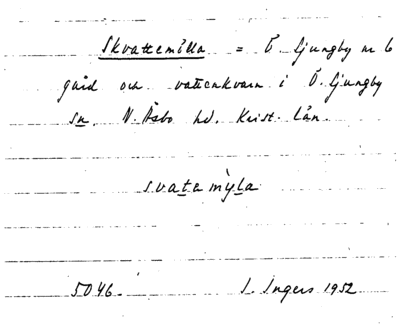 Skvattemölla = Ö. Ljungby nr 6
gård och vattenkvarn i Ö. Ljungby
sn. N. Åsbo hd. Krist. län.
svatamỳla
5046. I. Ingers 1952